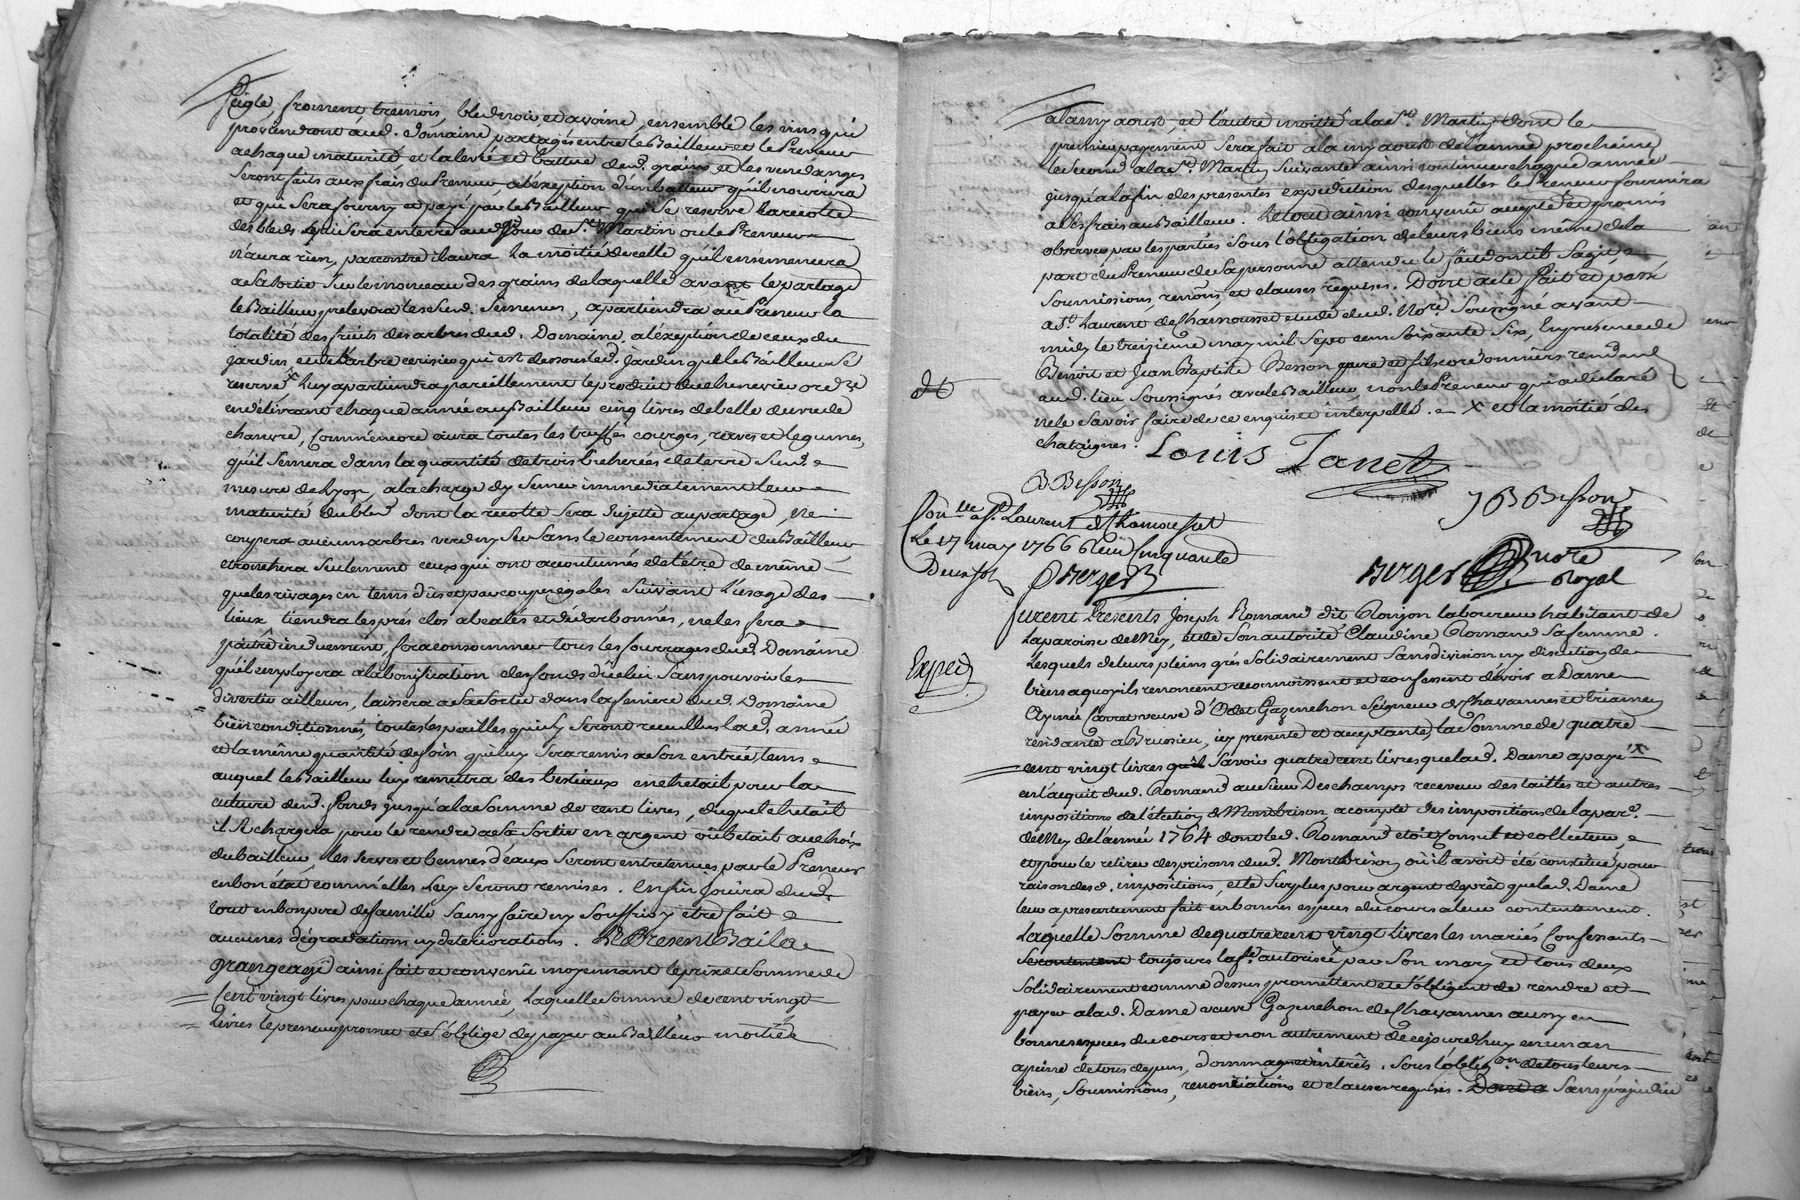 seigle, froment tremois, bled noir et avoine ensemble les vins qui
proviendront aud. Domaine partagés entre le Bailleur et le Preneur
a chaque maturité et la levé et batture desd. grains et les vendanges
seront faits aux frais du Preneur, a l'exeption d'un batteur qu'il nourrira
et qui sera fourny et payé par le Bailleur qui se reserve la recolte
des bleds qui sera en terre aud. jour de St. Martin ou le Preneur
n'aura rien, par contre il aura la moitié de celle qu'il ensemencera
a sa sortie sur le monceau des grains de laquelle avant le partage
le Bailleur prelevera lesd. semences, apartiendra au Preneur la
totalité des fruits des arbres dud. Domaine, a l'exeption de ceux du
jardin et de l'arbre cerisier qui est dessous led. jardin que le Bailleur se
reserve x luy apartiendra pareillement le produit du chenevier ord.re
en delivrant chaque année au Bailleur cinq livres de belle œuvre de
chanvre, comm'encore aura toutes les truffes courges, raves et legumes,
qu'il semera dans la quantité de trois bicherées de terre susd.
mesure de Lyon, a la charge d'y semer immediatement leur
maturité du bled dont la recolte sera sujette au partage, ne
coupera aucuns arbres verds ny sec sans le consentement du Bailleur
etronchera seulement ceux qui ont accoutumés de l'être de même
que les rivages en tems dus et par coupe egales suivant l'usage des
lieux tiendra les prés clos abealés et dédarbonnés, ne les fera
paitre induement, fera consommer tous les fourrages dud. Domaine
qu'il employera a la bonification des fonds d'icelui sans pouvoir les
divertir ailleurs, laissera a sa sortie dans la feniere dud. Domaine
bien conditionnés, toutes les pailles qui s'y seront recuillies lad. année
et la même quantité de foin qui luy sera remis a son entrée, tems
auquel le Bailleur luy remettra des bestiaux en chetail pour la
culture desd. fonds jusqu'a la somme de cent livres, duquel chetail
il se chargera pour le rendre a sa sortie en argent ou betail au choix
du bailleur, les serves et bennes d'eaux seront entretenues par le Preneur
en bon état comm'elles luy seront remises. Enfin jouira dud.
tout en bon pere de famille sans y faire ny souffrir y être fait
aucunes dégradations ny deteriorations. Le Present Bail a
grangeage ainsi fait et convenu moyennant le prix et somme de
cent vingt livres pour chaque année, laquelle somme de cent vingt
livres le preneur promet et s'oblige de payer au Bailleur moitiée
a la my aoust, et l'autre moitié a la St. Martin dont le
premier payement sera fait a la my aoust de l'année prochaine
le second a la St. Martin suivante ainsi continuer chaque année
jusqu'a la fin des presentes expedition desquelles le Preneur fournira
a ses frais au Bailleur. Le tout ainsi convenû accepté et promis
observer par les parties sous l'obligation de leurs biens même de la
part du Preneur de sa personne attendu le fait dont il s'agit
soumissions, renôns et clauses requises. Dont acte fait et passé
a St. Laurent de Chamousset etude dud. No.re soussigné avant
midy le treizieme may mil sept cens soixante six, En presence de
Benoit et Jean Baptiste Besson pere et fils cordonniers residant
aud. lieu soussignés avec le Bailleur, non le Preneur qui a declaré
ne le savoir faire de ce enquis et interpellé. x et la moitié des
chataignes. Louis Janet
B Besson
JB Besson
Con.lle a St. Laurent de Chamousset
Le 17 may 1766 Reçu cinquante
Deux sols Berger
Berger no.re royal
Furent Presents Joseph Romand dit Clonjon laboureur habitant de
la paroisse de Mey, et de son autorité Claudine Romand sa femme.
Lesquels de leurs pleins grés solidairement sans division ny discution de
biens a quoy ils renoncent reconnoissent et confessent devoir a Dame
Aymée Carret veuve d'Odet Gazenchon Seigneur de Chavannes et
residante a Brussieu, icy presente et aceptante, la somme de quatre
Exped
cent vingt livres savoir quatre cent livres que lad. Dame a payé
en l'acquit dud. Romand au sieur Deschamps receveur des tailles et autres
impositions de l'élection de Montbrison acompte des impositions de la par.e
de Mey de l'année 1764 dont led. Romand étoit consul et collecteur,
et pour le retirer des prisons dud. Montbrison où il avoit été constitué pour
raison desd. impositions, et le surplus pour argent de prêt que lad. Dame
leur a presentement fait en bonnes especes du cours a leur contentement.
Laquelle somme de quatre cent vingt livres les mariés confessants
toujours la fe. autorisée par son mary et tous deux
solidairement comme dessus promettent et s'obligent de rendre et
payer a lad. Dame veuve Gazenchon de Chavannes aussy en
bonnes especes du cours et non autrement de cejourd'huy en un an
a peine de tous depens, dommages interêts, sous l'oblig.on de tous leurs
biens, soumissions, renonciations et clauses requises. Sans prejudice